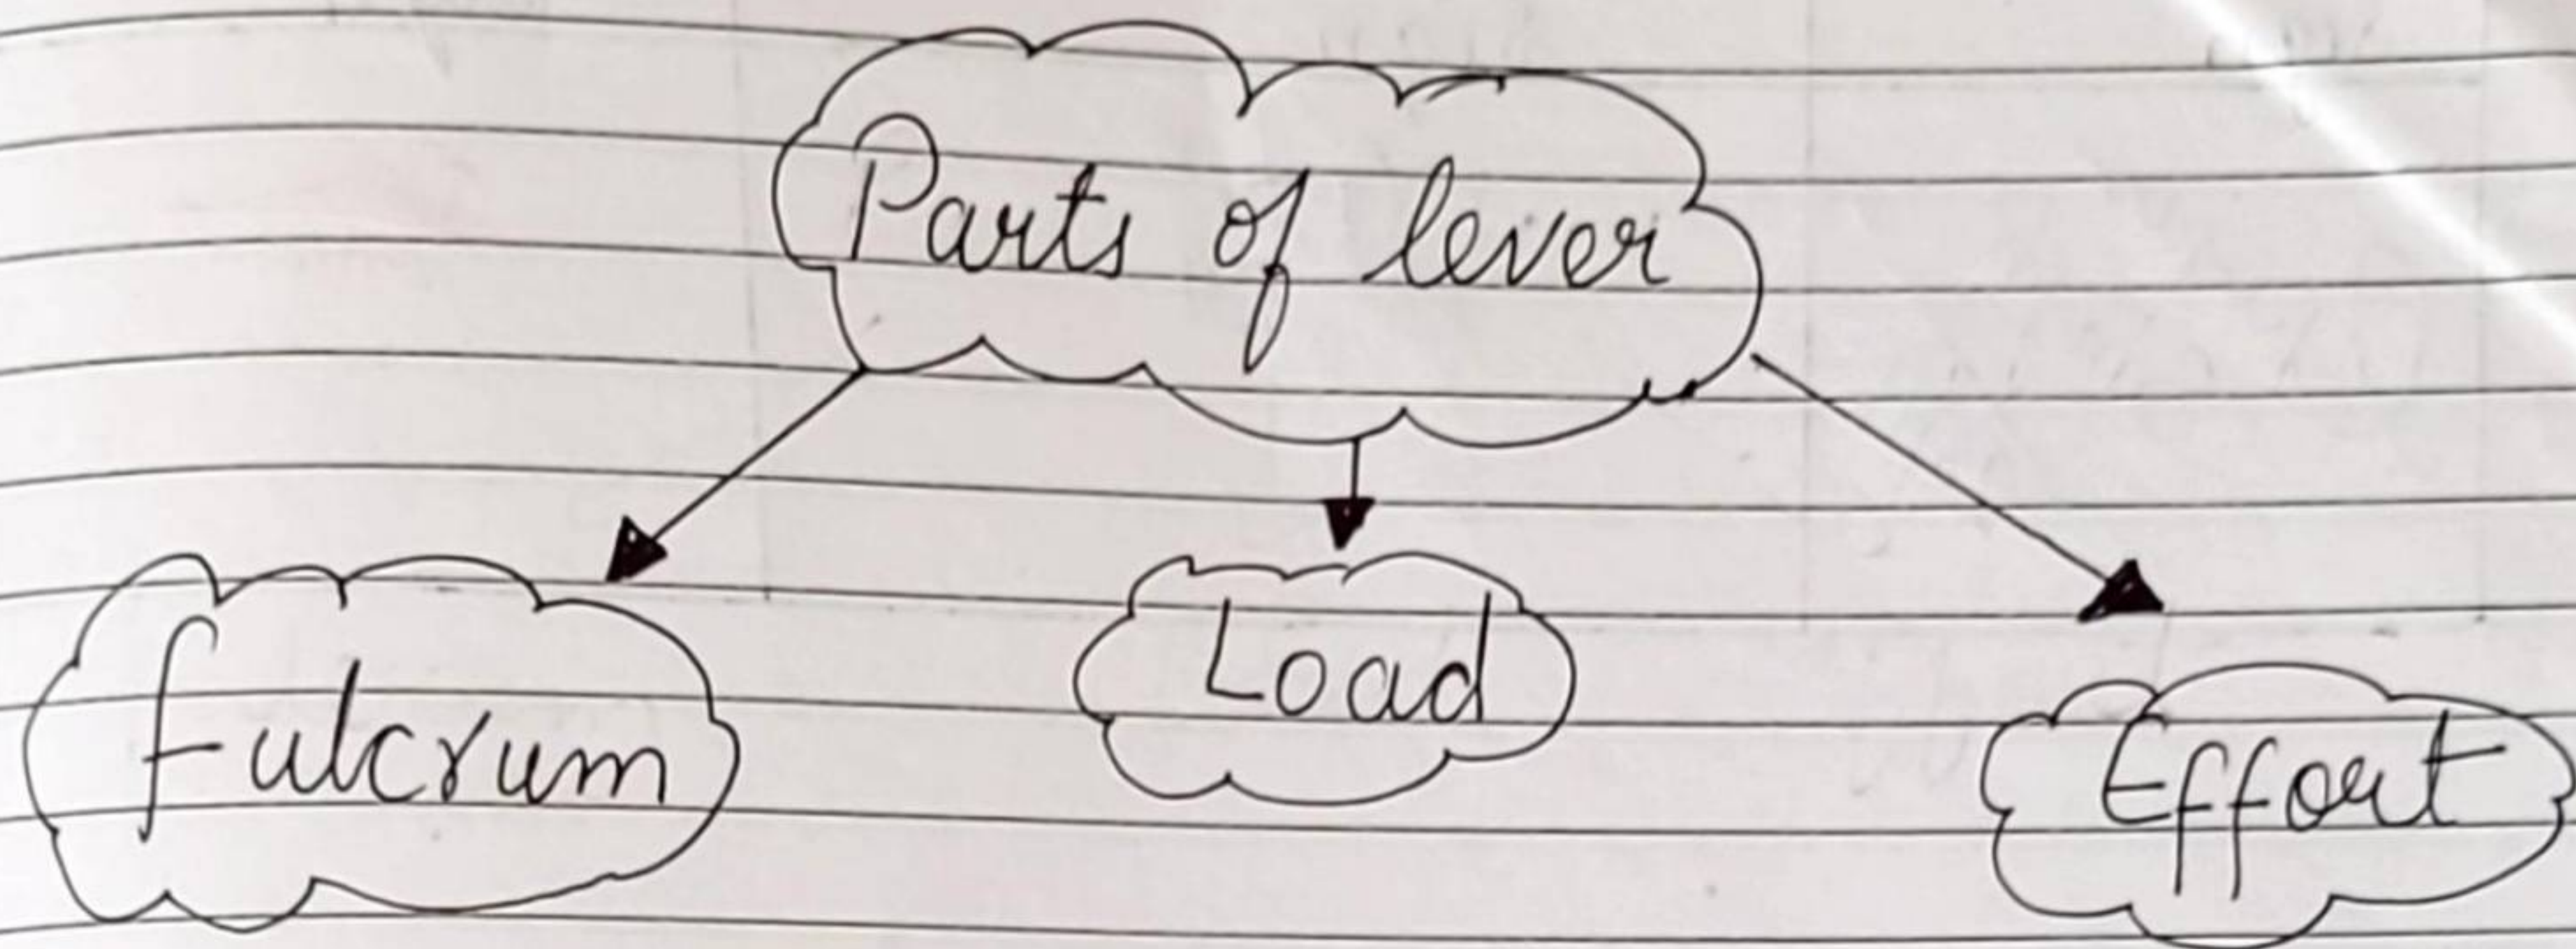 Parts of lever
fulcrum
Load
Effort